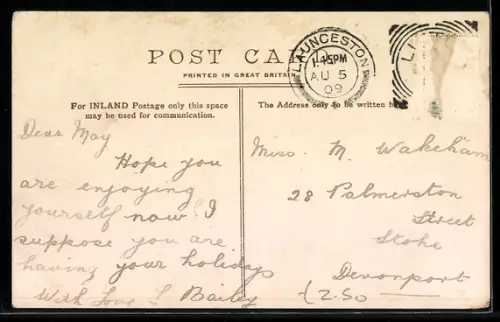 POST CA
PRINTED IN GREAT BRITAIN
LAUNCESTON
1.45PM
AU 5
09
For INLAND Postage only this space
may be used for communication.
The Address only to be written he
Dear May
Hope you
are enjoying
yourself now I
suppose you are
having your holidays
With Love L Bailey
Miss. M. Wakeham
28 Palmerston
Street
Stoke
Devonport
(2.50